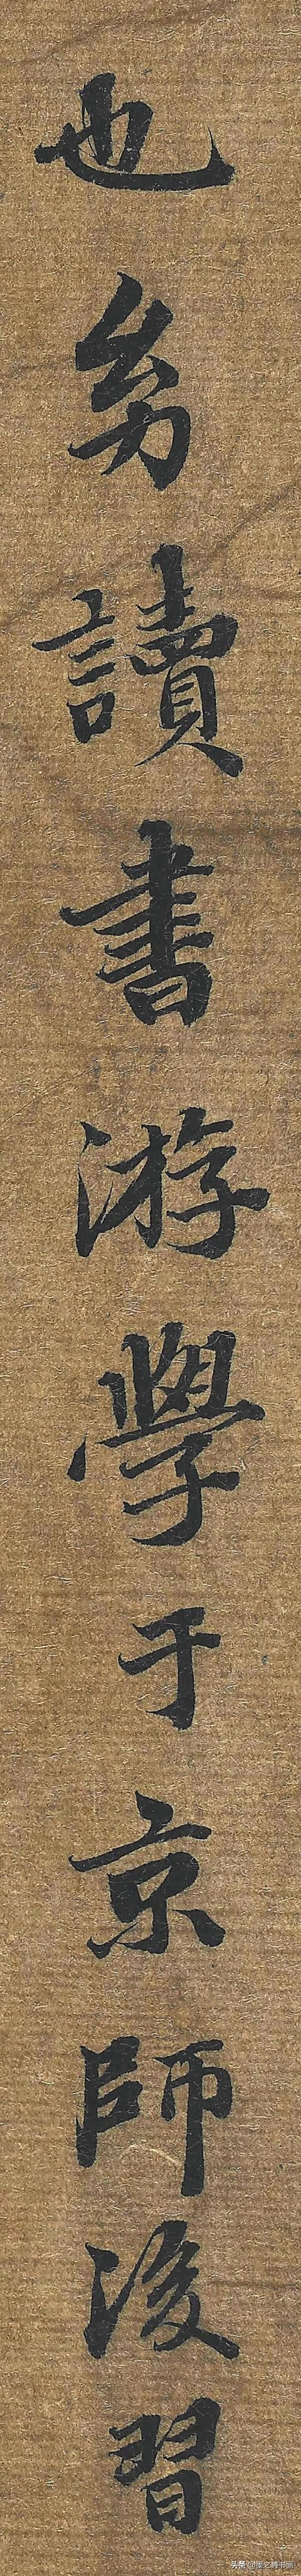 也幼讀書游學于京師後習